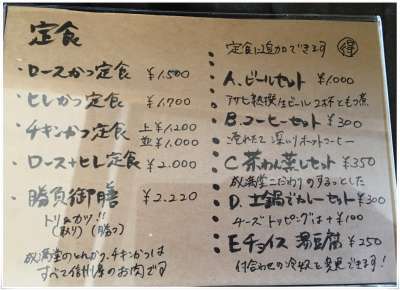 定食
・ロースかつ定食 ¥1,500
・ヒレかつ定食 ¥1,700
・チキンかつ定食 上¥1,200
並¥1,000
・ロース+ヒレ定食 ¥2,000
・勝負御膳 ¥2,220
トリ&カツ!!
(取り)(勝つ)
放満堂のとんかつ、チキンかつは
すべて信州産のお肉です
定食に追加できます 得
A.ビールセット ¥1,000
アサヒ熟撰 ビール2本ともつ煮
B.コーヒーセット ¥300
淹れたて 深いりホットコーヒー
C 茶わん蒸しセット ¥350
放満堂こだわりのするっとした
D.土鍋でカレーセット ¥300
チーズトッピングは+¥100
E チョイス 湯豆腐 ¥250
付合わせの冷奴と変更できます!